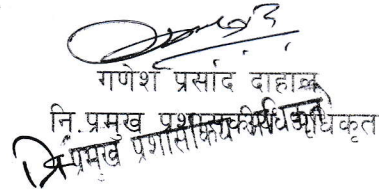 गणेश प्रसाद दाहाल
नि.प्रमुख प्रशासकीय अधिकृत
प्रमुख प्रशासकिय अधिकृत